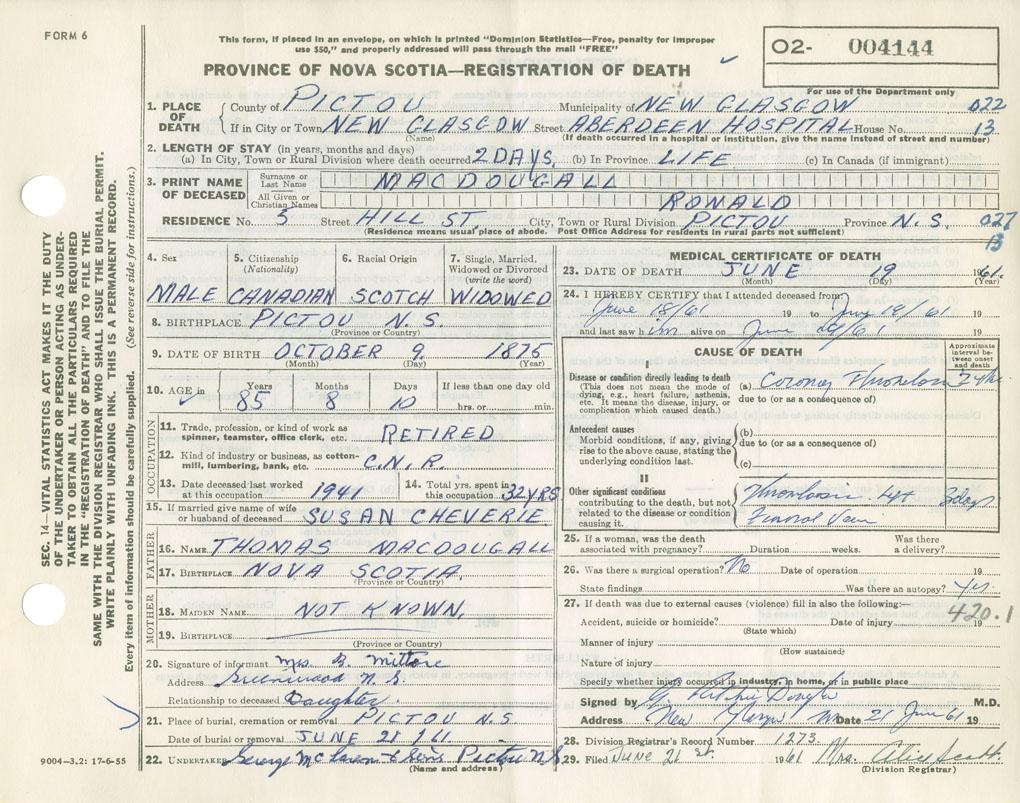 FORM 6
This form, if placed in an envelope, on which is printed "Dominion Statistics—Free, penalty for improper
use $50," and properly addressed will pass through the mail "FREE"
PROVINCE OF NOVA SCOTIA—REGISTRATION OF DEATH
O2- 004144
For use of the Department only
SEC. 14—VITAL STATISTICS ACT MAKES IT THE DUTY
OF THE UNDERTAKER OR PERSON ACTING AS UNDER-
TAKER TO OBTAIN ALL THE PARTICULARS REQUIRED
IN THE "REGISTRATION OF DEATH" AND TO FILE THE
SAME WITH THE DIVISION REGISTRAR WHO SHALL ISSUE THE BURIAL PERMIT.
WRITE PLAINLY WITH UNFADING INK. THIS IS A PERMANENT RECORD.
Every item of information should be carefully supplied. (See reverse side for instructions.)
1. PLACE OF DEATH County of PICTOU Municipality of NEW GLASGOW 022
If in City or Town NEW GLASGOW Street ABERDEEN HOSPITAL House No. 13
(Name) (If death occurred in a hospital or institution, give the name instead of street and number)
2. LENGTH OF STAY (in years, months and days)
(a) In City, Town or Rural Division where death occurred 2 DAYS, (b) In Province LIFE (c) In Canada (if immigrant)
3. PRINT NAME OF DECEASED Surname or Last Name MACDOUGALL
All Given or Christian Names RONALD
RESIDENCE No. 5 Street HILL ST, City, Town or Rural Division PICTOU Province N.S. 027
(Residence means usual place of abode. Post Office Address for residents in rural parts not sufficient) 13
4. Sex 5. Citizenship (Nationality) 6. Racial Origin 7. Single, Married, Widowed or Divorced (write the word)
MALE CANADIAN SCOTCH WIDOWED
8. BIRTHPLACE PICTOU N.S.
(Province or Country)
9. DATE OF BIRTH OCTOBER 9, 1875
(Month) (Day) (Year)
10. AGE in Years Months Days If less than one day old
85 8 10 hrs. or min.
OCCUPATION
11. Trade, profession, or kind of work as spinner, teamster, office clerk, etc. RETIRED
12. Kind of industry or business, as cotton-mill, lumbering, bank, etc. C.N.R.
13. Date deceased last worked at this occupation 1941 14. Total yrs. spent in this occupation 32 YRS
15. If married give name of wife or husband of deceased SUSAN CHEVERIE
FATHER
16. NAME THOMAS MACDOUGALL
17. BIRTHPLACE NOVA SCOTIA.
(Province or Country)
MOTHER
18. MAIDEN NAME NOT KNOWN,
19. BIRTHPLACE
(Province or Country)
20. Signature of informant Mrs. B.
Address Greenwood N.S.
Relationship to deceased Daughter.
21. Place of burial, cremation or removal PICTOU N.S.
Date of burial or removal JUNE 21/61
22. UNDERTAKER George McLaren Pictou N.S.
(Name and address)
9004-3.2: 17-6-55
MEDICAL CERTIFICATE OF DEATH
23. DATE OF DEATH JUNE 19 1961.
(Month) (Day) (Year)
24. I HEREBY CERTIFY that I attended deceased from:
June 18/61 19 to June 19/61 19
and last saw him alive on June 61 19
CAUSE OF DEATH
Approximate interval between onset and death
I
Disease or condition directly leading to death
(This does not mean the mode of dying, e.g., heart failure, asthenia, etc. It means the disease, injury, or complication which caused death.)
(a) Coronary Thrombosis
due to (or as a consequence of)
Antecedent causes
Morbid conditions, if any, giving rise to the above cause, stating the underlying condition last.
(b)
due to (or as a consequence of)
(c)
II
Other significant conditions
contributing to the death, but not related to the disease or condition causing it.
Thrombosis Left 3 days
Femoral Vein
25. If a woman, was the death associated with pregnancy? Duration weeks. Was there a delivery?
26. Was there a surgical operation? No Date of operation 19
State findings Was there an autopsy? Yes.
27. If death was due to external causes (violence) fill in also the following:— 420.1
Accident, suicide or homicide? Date of injury 19
(State which)
Manner of injury
(How sustained)
Nature of injury
Specify whether injury occurred in industry, in home, or in public place
Signed by G. Ritchie M.D.
Address New Date 21 June 61 19
28. Division Registrar's Record Number 1273.
29. Filed June 21st. 1961 Mrs. Alice Scott.
(Division Registrar)